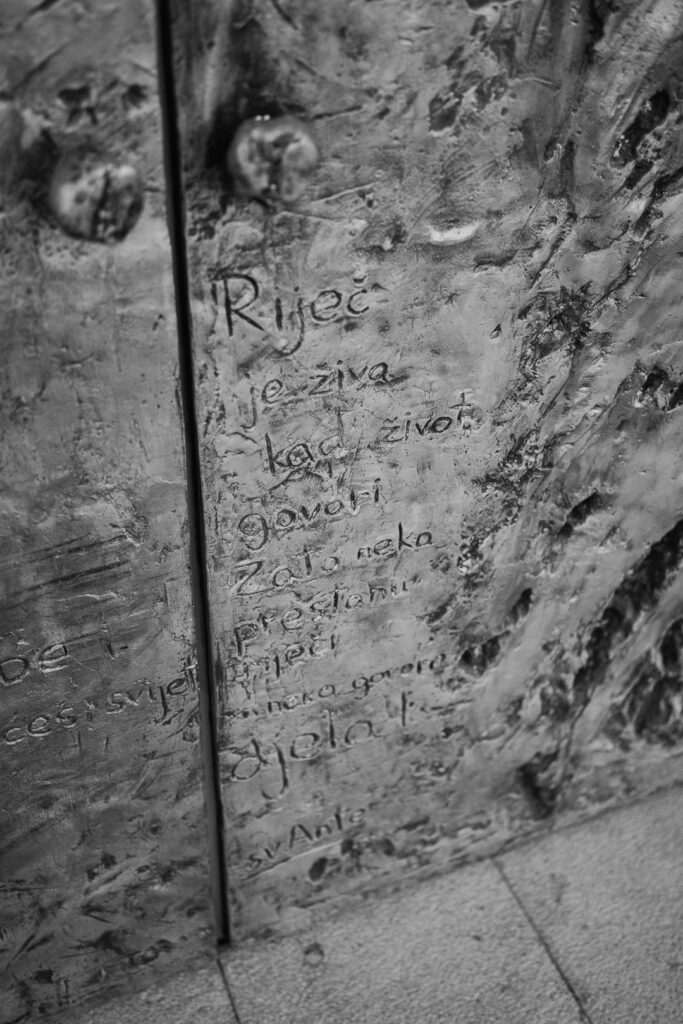 be i
ćeš i svijet
Riječ
je živa
kad život
govori
Zato neka
prestanu
riječi
a neka govore
djela!
sv Ante